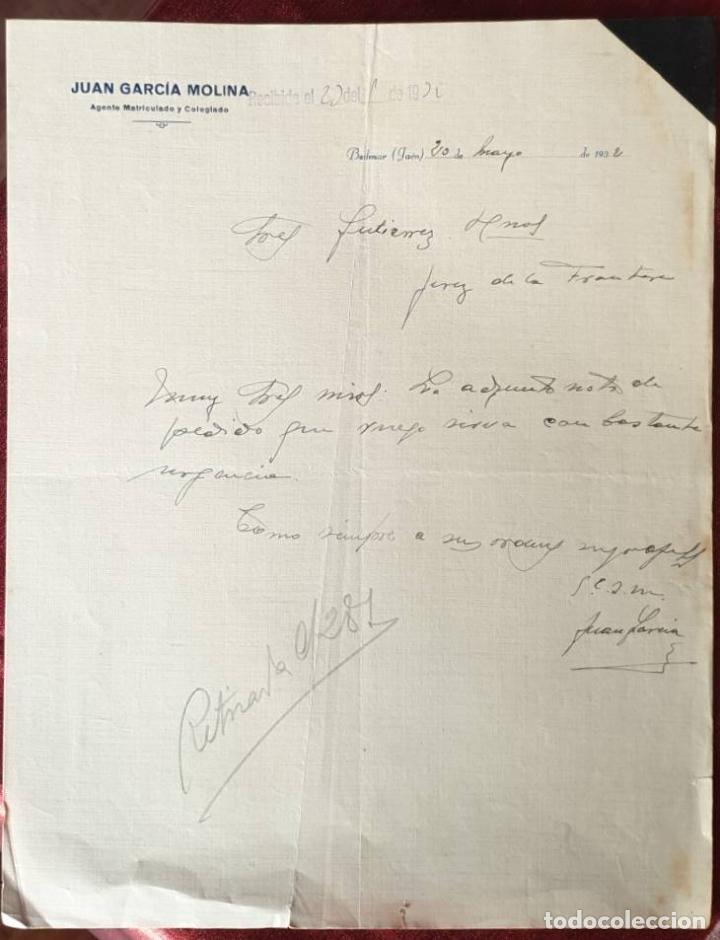 JUAN GARCÍA MOLINA
Agente Matriculado y Colegiado
Recibida el 23 de de 193
Bedmar (Jaén) 20 de mayo de 1932
Sres Gutierrez Hnos
Jerez de la Frontera
Muy Sres mios. Le adjunto nota de
pedido que ruego sirva con bastante
urgencia.
Como siempre a sus ordenes
q.e.s.m.
Juan Garcia
todocoleccion.net